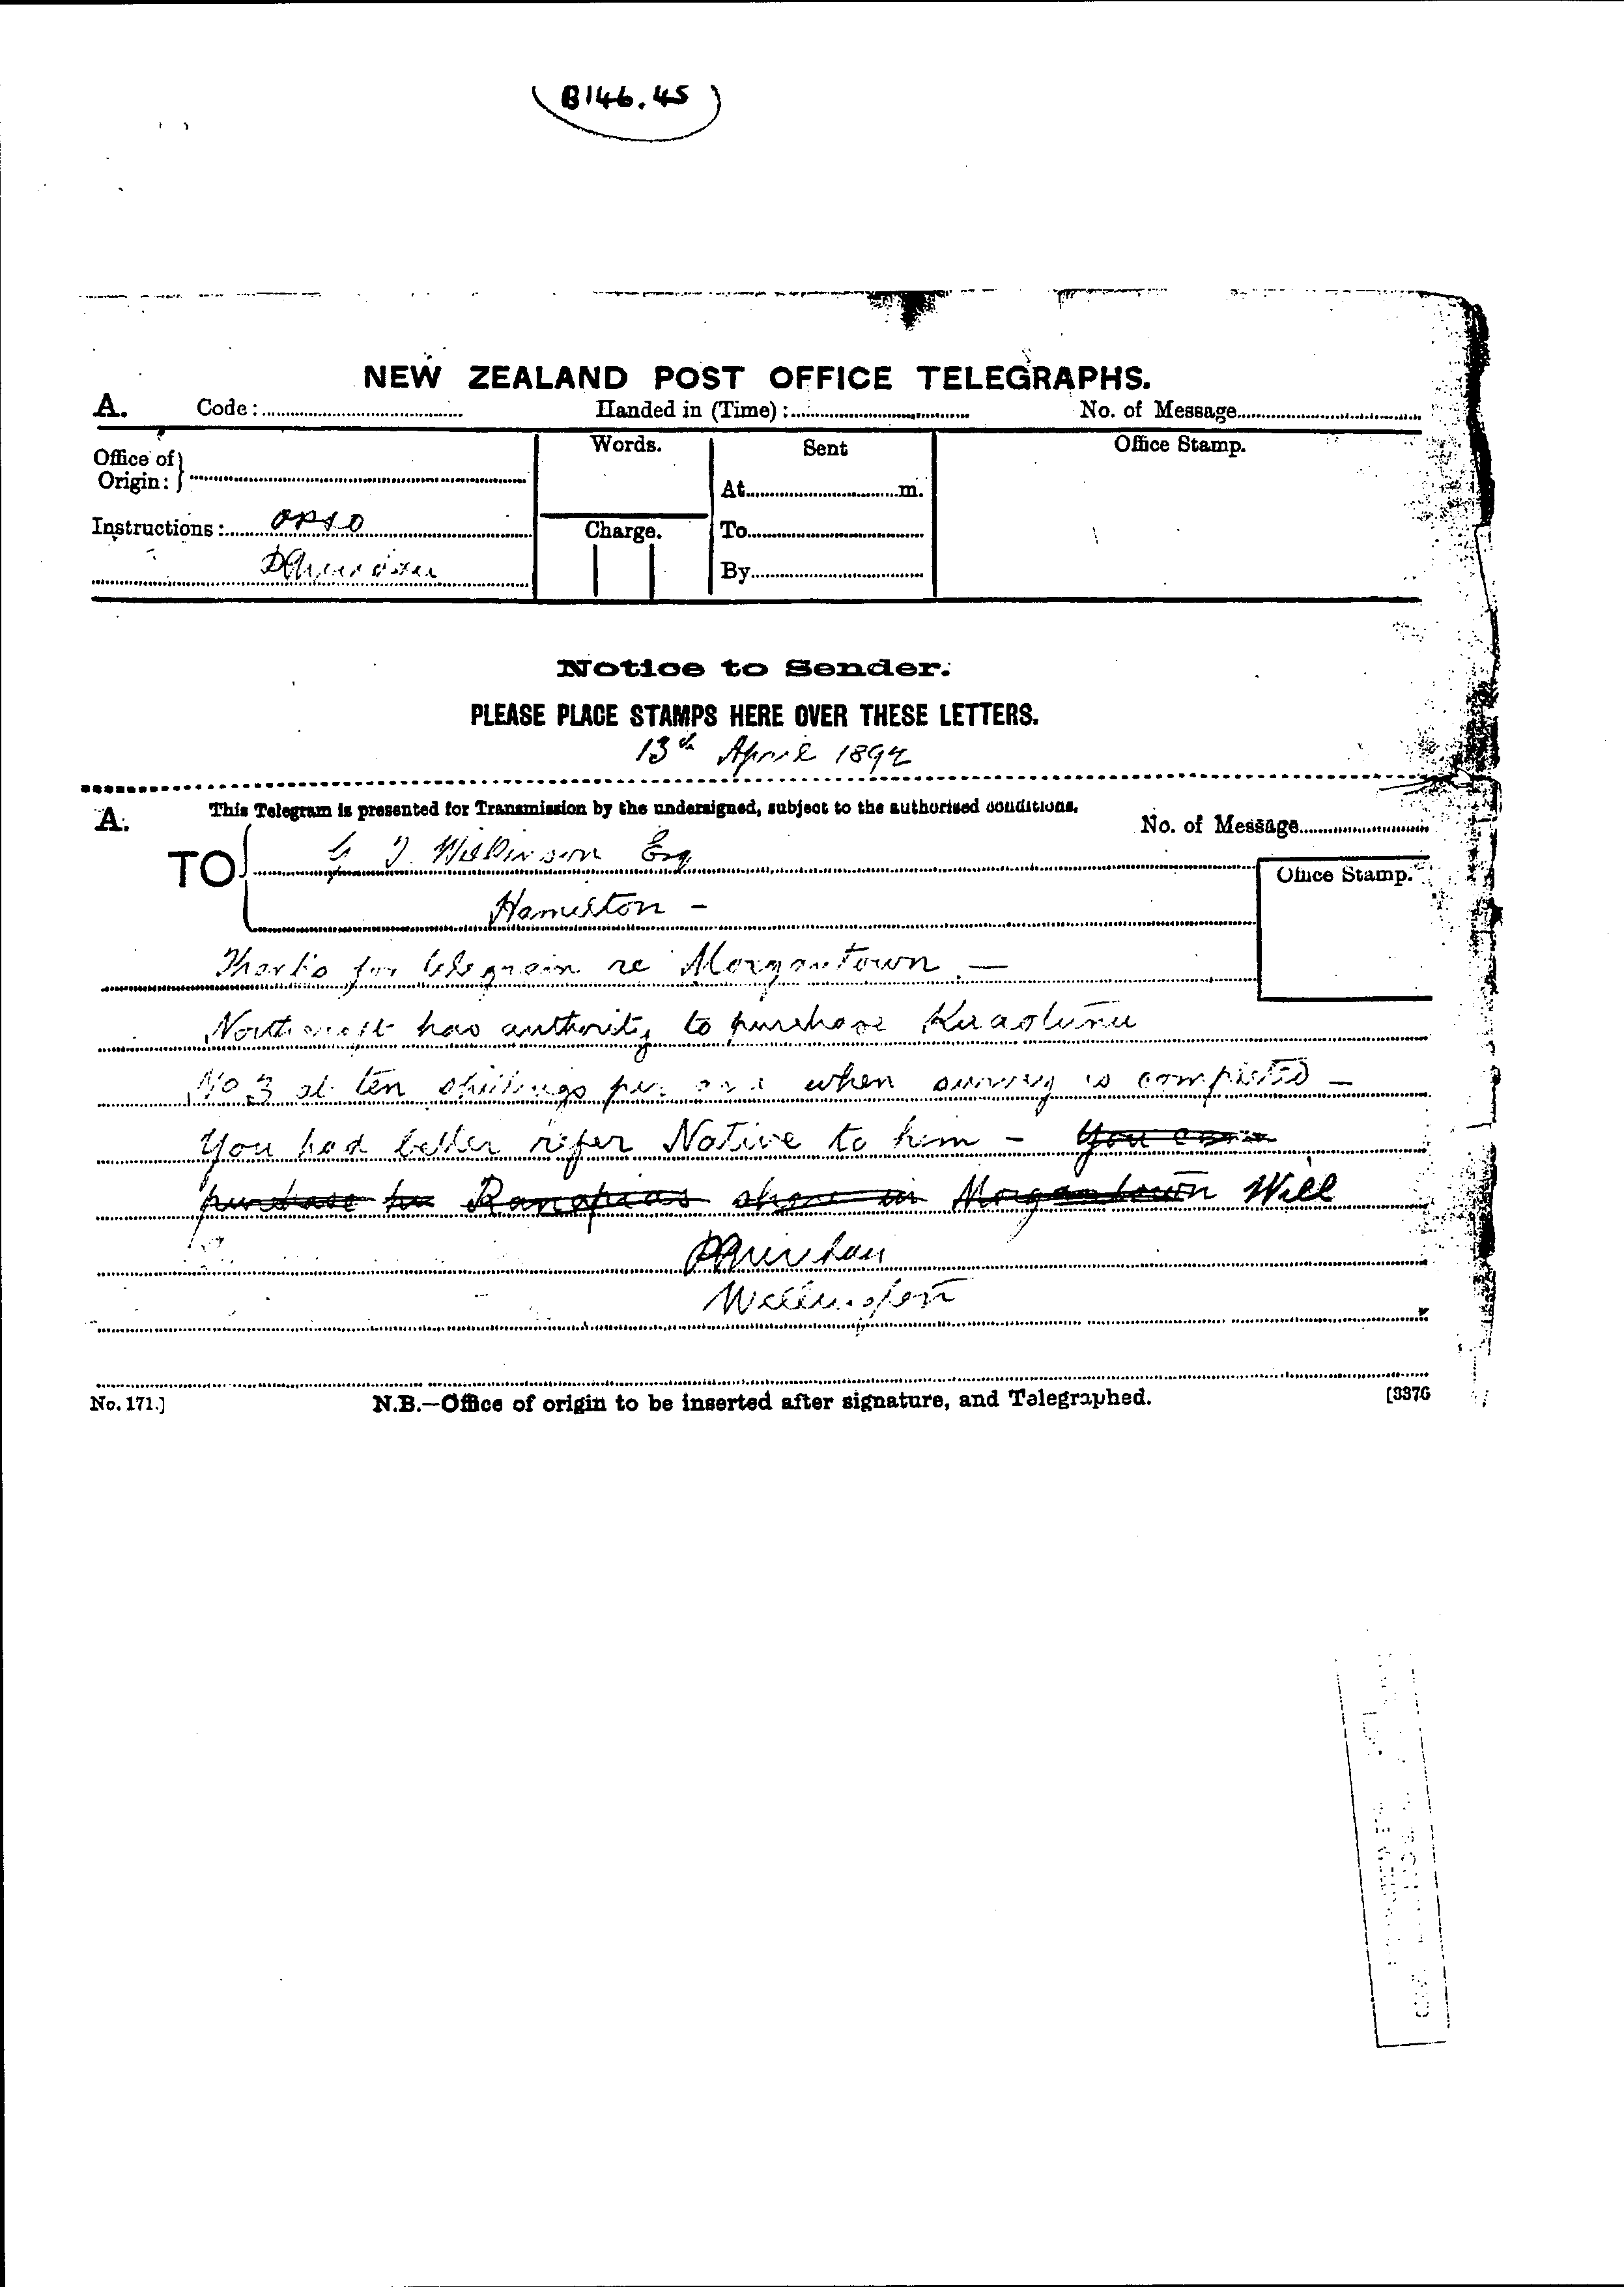 B146.45
NEW ZEALAND POST OFFICE TELEGRAPHS.
A. Code: Handed in (Time): No. of Message
Office of Origin: Words. Sent Office Stamp.
At m.
Instructions: OPSO Charge. To
By
Notice to Sender.
PLEASE PLACE STAMPS HERE OVER THESE LETTERS.
13th April 1892
A. This Telegram is presented for Transmission by the undersigned, subject to the authorised conditions.
No. of Message
TO G T. Wilkinson Esq
Office Stamp.
Hamilton -
Thanks for telegram re Morgantown -
has authority to purchase
No 3 at ten shillings per acre when survey is completed -
You had better refer Native to him - You can
purchase share in Morgantown Will
Wellington
No. 171.] N.B.—Office of origin to be inserted after signature, and Telegraphed. [3376